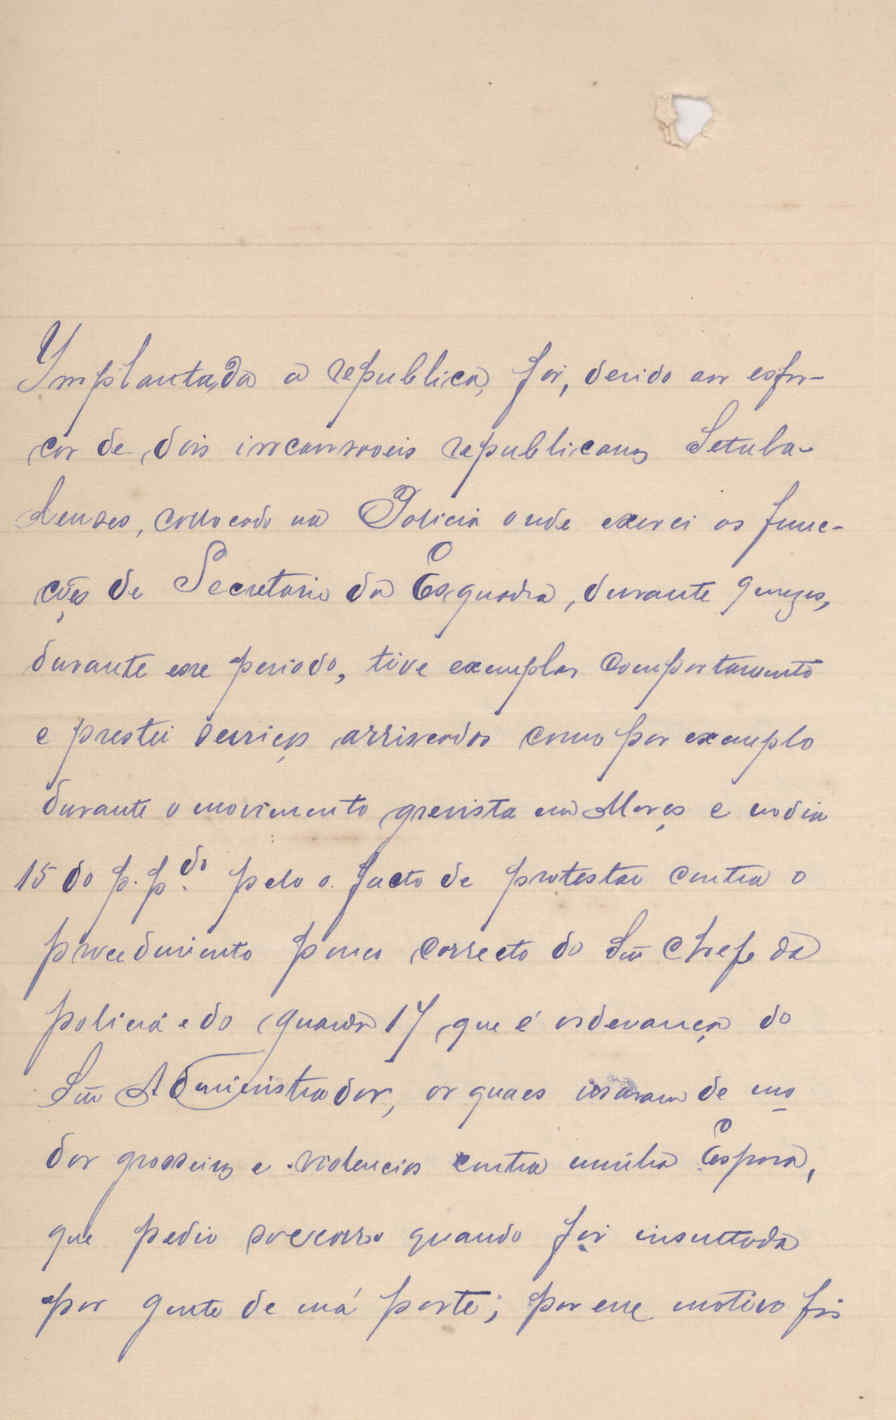 Implantada a republica, foi, devido aos esfor-
ços de dois incansaveis republicanos Setuba-
lenses, collocado na Policia onde exerci as func-
ções de Secretario da Esquadra, durante 9 mezes,
durante esse periodo, tive exemplar comportamento
e prestei serviços arriscados como por exemplo
durante o movimento grevista em Março e no dia
15 do p. p.do pelo o facto de protestar contra o
procedimento pouco correcto do Snr Chefe da
policia e do guarda 17 que é ordenança do
Snr Administrador, os quaes usaram de mo
dos grosseiros e violencias contra minha Esposa,
que pedio soccorro quando foi insultada
por gente de má porte; por esse motivo fis